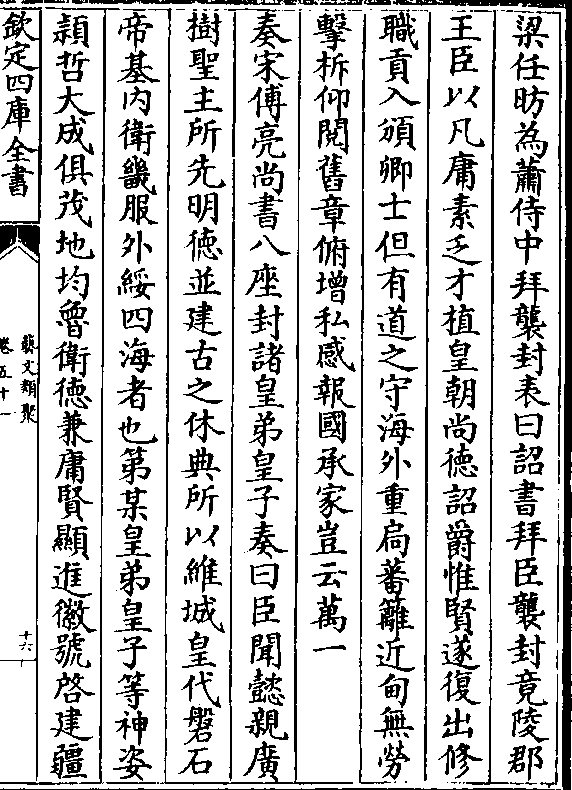 梁任昉為蕭侍中拜襲封表曰詔書拜臣襲封竟陵郡
王臣以凡庸素乏才植皇朝尚德詔爵惟賢遂復出修
職貢入頒卿士但有道之守海外重扃蕃籬近甸無勞
擊柝仰閱舊章俯增私感報國承家豈云萬一
奏宋傅亮尚書八座封諸皇弟皇子奏曰臣聞懿親廣
樹聖主所先明德並建古之休典所以維城皇代磐石
帝基內衛畿服外綏四海者也第某皇弟皇子等神姿
穎哲大成俱茂地均魯衛德兼庸賢顯進徽號啓建疆
欽定四庫全書
藝文類聚
卷五十一
十六